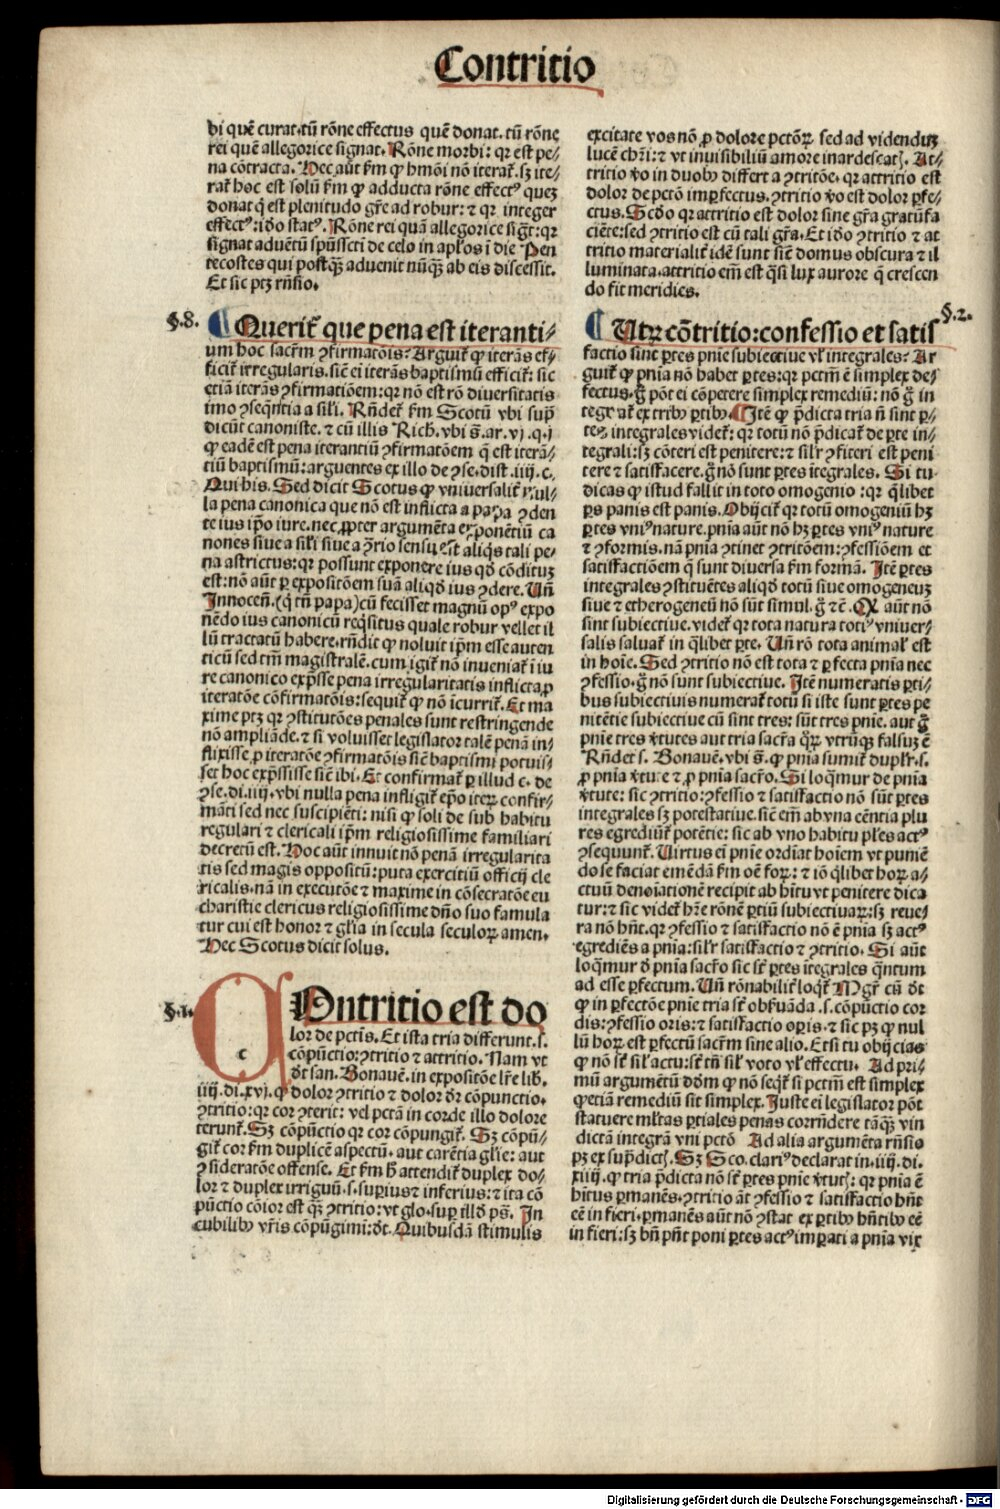 Contritio
bi quē curat. tū rōne effectus quē donat. tū rōne
rei quē allegorice signat. Rōne morbi: qr est pe⸗
na cōtracta. Hec aūt ẜm ꝙ hmōi nō iterat̄. sꝫ ite⸗
rat̄ hoc est solū ẜm ꝙ adducta rōne effectꝰ quez
donat q̇ est plenitudo gr̄e ad robur: ⁊ qr integer
effectꝰ: iō statꝰ. Rōne rei quā allegorice sigt̄: qr
signat aduētū spūssc̄ti de celo in apl̄os ī die Pen
tecostes qui postqꝫ̄ aduenit nūqꝫ̄ ab eis discessit.
Et sic ptꝫ rn̄sio.
§.8. ¶ Querit̄ que pena est iteranti⸗
um hoc sacr̄m ꝯfirmatōis? Arguit̄ ꝙ iterās ef⸗
ficit̄ irregularis. sic̄ ei iterās baptismū efficit̄: sic
etiā iterās ꝯfirmatiōem: qr nō est rō diuersitatis
imo ꝯseqn̄tia a sil̄i. Rn̄det̄ ẜm Scotū vbi supͣ
dicūt canoniste. ⁊ cū illis Rich. vbi s̄. ar. vj. q. j
ꝙ eadē est pena iterantiū ꝯfirmatōem q̄ est iterā⸗
tiū baptismū: arguentes ex illo de ꝯse. dist. iiij. c.
Qui bis. Sed dicit Scotus ꝙ vniuersalit̄ nul⸗
la pena canonica que nō est inflicta a papa ꝯden
te ius ip̄o iure. nec ꝓpter argumēta exponētiū ca
nones siue a sil̄i siue a ꝯ̄rio sensu est aliqs tali pe⸗
na astrictus: qr possunt exponere ius qd̄ cōditū
est: nō aūt ꝑ expositōem suā aliqd̄ ius ꝯdere. Un̄
Innocen̄. (q̇ tn̄ papa) cū fecisset magnū opꝰ expo
nēdo ius canonicū reqsitus quale robur vellet il
lū tractatū habere. rn̄dit ꝙ noluit ip̄m esse auten
ticū sed tm̄ magistralē. cum igit̄ nō inueniat̄ ī iu
re canonico exp̄sse pena irregularitatis inflicta ꝓ
iteratōe cōfirmatōis: sequit̄ ꝙ nō īcurrit̄. Et ma
xime ptꝫ qr ꝯstitutōes penales sunt restringende
nō ampliāde. ⁊ si voluisset legislator talē penā in⸗
flixisse ꝓ iteratōe ꝯfirmatōis sic̄ baptismi potuis⸗
set hoc exp̄ssisse sic̄ ibi. Et confirmat̄ ꝑ illud c. de
ꝯse. di. iiij. vbi nulla pena infligit̄ ep̄o iteꝝ confir⸗
māti sed nec suscipiēti: nisi ꝙ soli de sub habitu
regulari ⁊ clericali ip̄m religiosissime familiari
decretū est. Hoc aūt innuit nō penā irregularita
tis sed magis oppositū: puta exercitiū officij cle
ricalis. nā in executōe ⁊ maxime in cōsecratōe eu
charistie clericus religiosissime dn̄o suo famula
tur cui est honor ⁊ gl̄ia in secula seculoꝝ amen.
Hec Scotus dicit solus.
§.1. c Ontritio est do
lor de pctīs. Et ista tria differunt. s.
cōpūctio: ꝯtritio ⁊ attritio. Nam vt
dt̄ san. Bonauē. in expositōe lr̄e lib.
iiij. di. xvj. q̊ dolor ꝯtritio ⁊ dolor dr̄ cōpunctio.
ꝯtritio: qr cor ꝯterit: vel pctā in corde illo dolore
terunt̄. Sꝫ cōpūctio qr cor cōpungit̄. Sꝫ cōpū⸗
git̄ cor ẜm duplicē aspectū. aut carētia gl̄ie: aut
ꝯsideratōe offense. Et ẜm h̄ attendit̄ duplex do⸗
lor ⁊ duplex irriguū. s. supius ⁊ inferius: ⁊ ita cō
pūctio cōior est qꝫ̄ ꝯtritio: vt glo. suꝑ illd̄ pṡ. In
cubilibꝰ vr̄is cōpūgimi: dt̄. Quibusdā stimulis
excitate vos nō ꝓ dolore pctōꝝ sed ad videnduꝫ
lucē chr̄i: ⁊ vt inuisibiliū amore inardescatꝭ. At⸗
tritio v̊o in duobꝰ differt a ꝯtritōe. qr attritio est
dolor de pctō imꝑfectus. ꝯtritio v̊o est dolor ꝑfe⸗
ctus. Scd̊o qr attritio est dolor sine gr̄a gratū fa
ciēte: sed ꝯtritio est cū tali gr̄a. Et iō ꝯtritio ⁊ at
tritio materialit̄ idē sunt sic̄ domus obscura ⁊ il
luminata. attritio em̄ est q̄si lux aurore q̄ crescen
do fit meridies.
§.2. ¶ Utꝝ cōtritio: confessio et satis
factio sint ꝑtes pn̄ie subiectiue vl̄ integrales? Ar
guit̄ ꝙ pn̄ia nō habet ꝑtes: qr pctm̄ ē simplex de⸗
fectus. g̊ pōt ei cōpetere simplex remediū: nō g̊ in
tegrat̄ ex tribꝰ ꝑtibꝰ. Itē ꝙ p̄dicta tria n̄ sint ꝑ⸗
tes integrales videt̄: qr totū nō p̄dicat̄ de ꝑte in⸗
tegrali: sꝫ cōteri est penitere: ⁊ sil̄r ꝯfiteri est peni
tere ⁊ satisfacere. g̊ nō sunt ꝑtes ītegrales. Si tu⸗
dicas ꝙ istud fallit in toto omogenio: qr q̄libet
ꝑs panis est panis. Obijcit̄ qr totū omogeniū hꝫ
ꝑtes vniꝰ nature. pn̄ia aūt nō hꝫ ꝑtes vniꝰ nature
⁊ ꝯformis. nā pn̄ia ꝯtinet ꝯtritōem: ꝯfessiōem et
satisfactiōem q̄ sunt diuersa ẜm formā. Itē ꝑtes
integrales ꝯstituētes aliqd̄ totū siue omogeneuꝫ
siue ⁊ etherogeneū nō sūt simul. g̊ ⁊c̄. Qꝙ aūt nō
sint subiectiue. videt̄ qr tota natura totiꝰ vniuer⸗
salis saluat̄ in q̄libet ꝑte. Un̄ rō tota animal̄ est
in hoīe. Sed ꝯtritio nō est tota ⁊ ꝑfecta pn̄ia nec
ꝯfessio. g̊ nō sunt subiectiue. Itē numeratis ꝑti⸗
bus subiectiuis numerat̄ totū si iste sunt ꝑtes pe
nitētie subiectiue cū sint tres: sūt tres pn̄ie. aut g̊
pn̄ie tres v̊tutes aut tria sacr̄a qꝝ̄ vtrūqꝫ falsuꝫ ē
Rn̄det s. Bonauē. vbi s̄. ꝙ pn̄ia sumit̄ dupl̄r. s.
ꝓ pn̄ia v̊tute ⁊ ꝓ pn̄ia sacr̄o. Si loqmur de pn̄ia
v̊tute: sic ꝯtritio: ꝯfessio ⁊ satisfactio nō sūt ꝑtes
integrales sꝫ potestatiue. sic̄ em̄ ab vna cēntia plu
res egrediūt̄ potētie: sic ab vno habitu pl̄es actꝰ
ꝯsequunt̄. Uirtus ei pn̄ie ordīat hoīem vt puniē
do se faciat emēdā ẜm oē foꝝ: ⁊ iō q̄libet hoꝝ a⸗
ctuū denoīationē recipit ab hītu vt penitere dica
tur: ⁊ sic videt̄ hr̄e rōnē ꝑtiū subiectiuaꝝ: sꝫ reue⸗
ra nō hn̄t. qr ꝯfessio ⁊ satisfactio nō ē pn̄ia sꝫ actꝰ
egrediēs a pn̄ia: sil̄r satisfactio ⁊ ꝯtritio. Si aūt
loqmur d̄ pn̄ia sacr̄o sic st̄ ꝑtes ītegrales q̄ntum
ad esse ꝑfectum. Un̄ rōnabilit̄ loqt̄ Mgr̄ cū dt̄
ꝙ in ꝑfectōe pn̄ie tria st̄ obẜuāda. s. cōpūctio cor
dis: ꝯfessio oris: ⁊ satisfactio oꝑis. ⁊ sic pꝫ ꝙ nul
lū hoꝝ est ꝑfectū sacr̄m sine alio. Et si tu obijcias
ꝙ nō st̄ sil̄ actu: st̄ tn̄ sil̄ voto vl̄ effectu. Ad pri⸗
mū argumētū dd̄m ꝙ nō seqt̄ si pctm̄ est simplex
ꝙ etiā remediū sit simplex. Iuste ei legislator pōt
statuere ml̄tas ꝑtiales penas corrn̄dere tāqꝫ̄ vin
dictā integrā vni pctō Ad alia argumēta rn̄sio
pꝫ ex sup̄dictꝭ. Sꝫ Sco. clariꝰ declarat in. iiij. di.
xiiij. ꝙ tria p̄dicta nō st̄ ꝑtes pn̄ie v̊tutꝭ: qr pn̄ia ē
hītus ꝑmanēs. ꝯtritio āt ꝯfessio ⁊ satisfactio hn̄t
eē in fieri. ꝑmanēs aūt nō ꝯstat ex ꝑtibꝰ hn̄tibꝰ eē
in fieri: sꝫ bn̄ pn̄t poni ꝑtes actꝰ imꝑati a pn̄ia vix
Digitalisierung gefördert durch die Deutsche Forschungsgemeinschaft - DFG